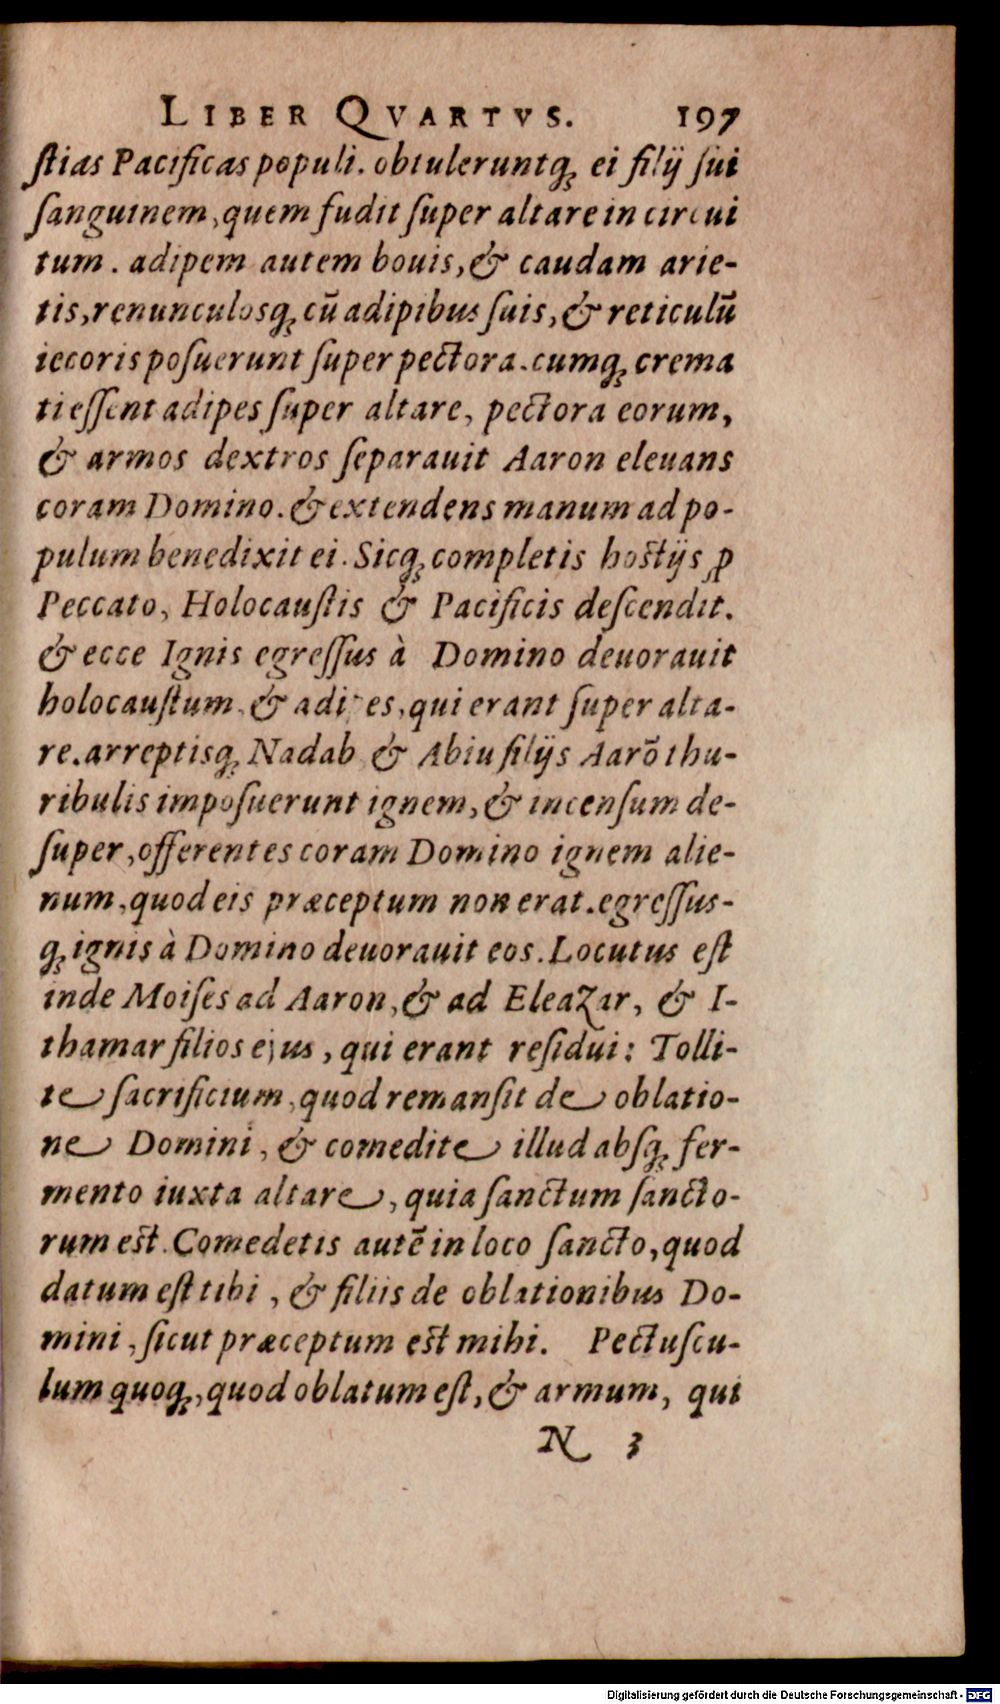 LIBER QVARTVS. 197
ſtias Pacificas populi. obtuleruntq́ꝫ ei filij ſui
ſanguinem, quem fudit ſuper altare in circui
tum. adipem autem bouis, & caudam arie-
tis, renunculosqꝫ cū adipibus ſuis, & reticulū
iecoris poſuerunt ſuper pectora. cumqꝫ crema
ti eſſent adipes ſuper altare, pectora eorum,
& armos dextros ſeparauit Aaron eleuans
coram Domino. & extendens manum ad po-
pulum benedixit ei. Sicqꝫ completis hostijs ꝓ
Peccato, Holocauſtis & Pacificis deſcendit.
& ecce Ignis egreſſus à Domino deuorauit
holocauſtum, & adipes, qui erant ſuper alta-
re. arreptisqꝫ Nadab & Abiu filijs Aarō thu-
ribulis impoſuerunt ignem, & incenſum de-
ſuper, offerentes coram Domino ignem alie-
num, quod eis præceptum non erat. egreſſus-
qꝫ ignis à Domino deuorauit eos. Locutus eſt
inde Moiſes ad Aaron, & ad Eleazar, & I-
thamar filios ejus, qui erant reſidui: Tolli-
te ſacrificium, quod remanſit de oblatio-
ne Domini, & comedite illud abſqꝫ fer-
mento iuxta altare, quia ſanctum ſancto-
rum est. Comedetis autē in loco ſancto, quod
datum eſt tibi, & filiis de oblationibus Do-
mini, ſicut præceptum est mihi. Pectuſcu-
lum quoqꝫ, quod oblatum eſt, & armum, qui
N 3
Digitalisierung gefördert durch die Deutsche Forschungsgemeinschaft - DFG